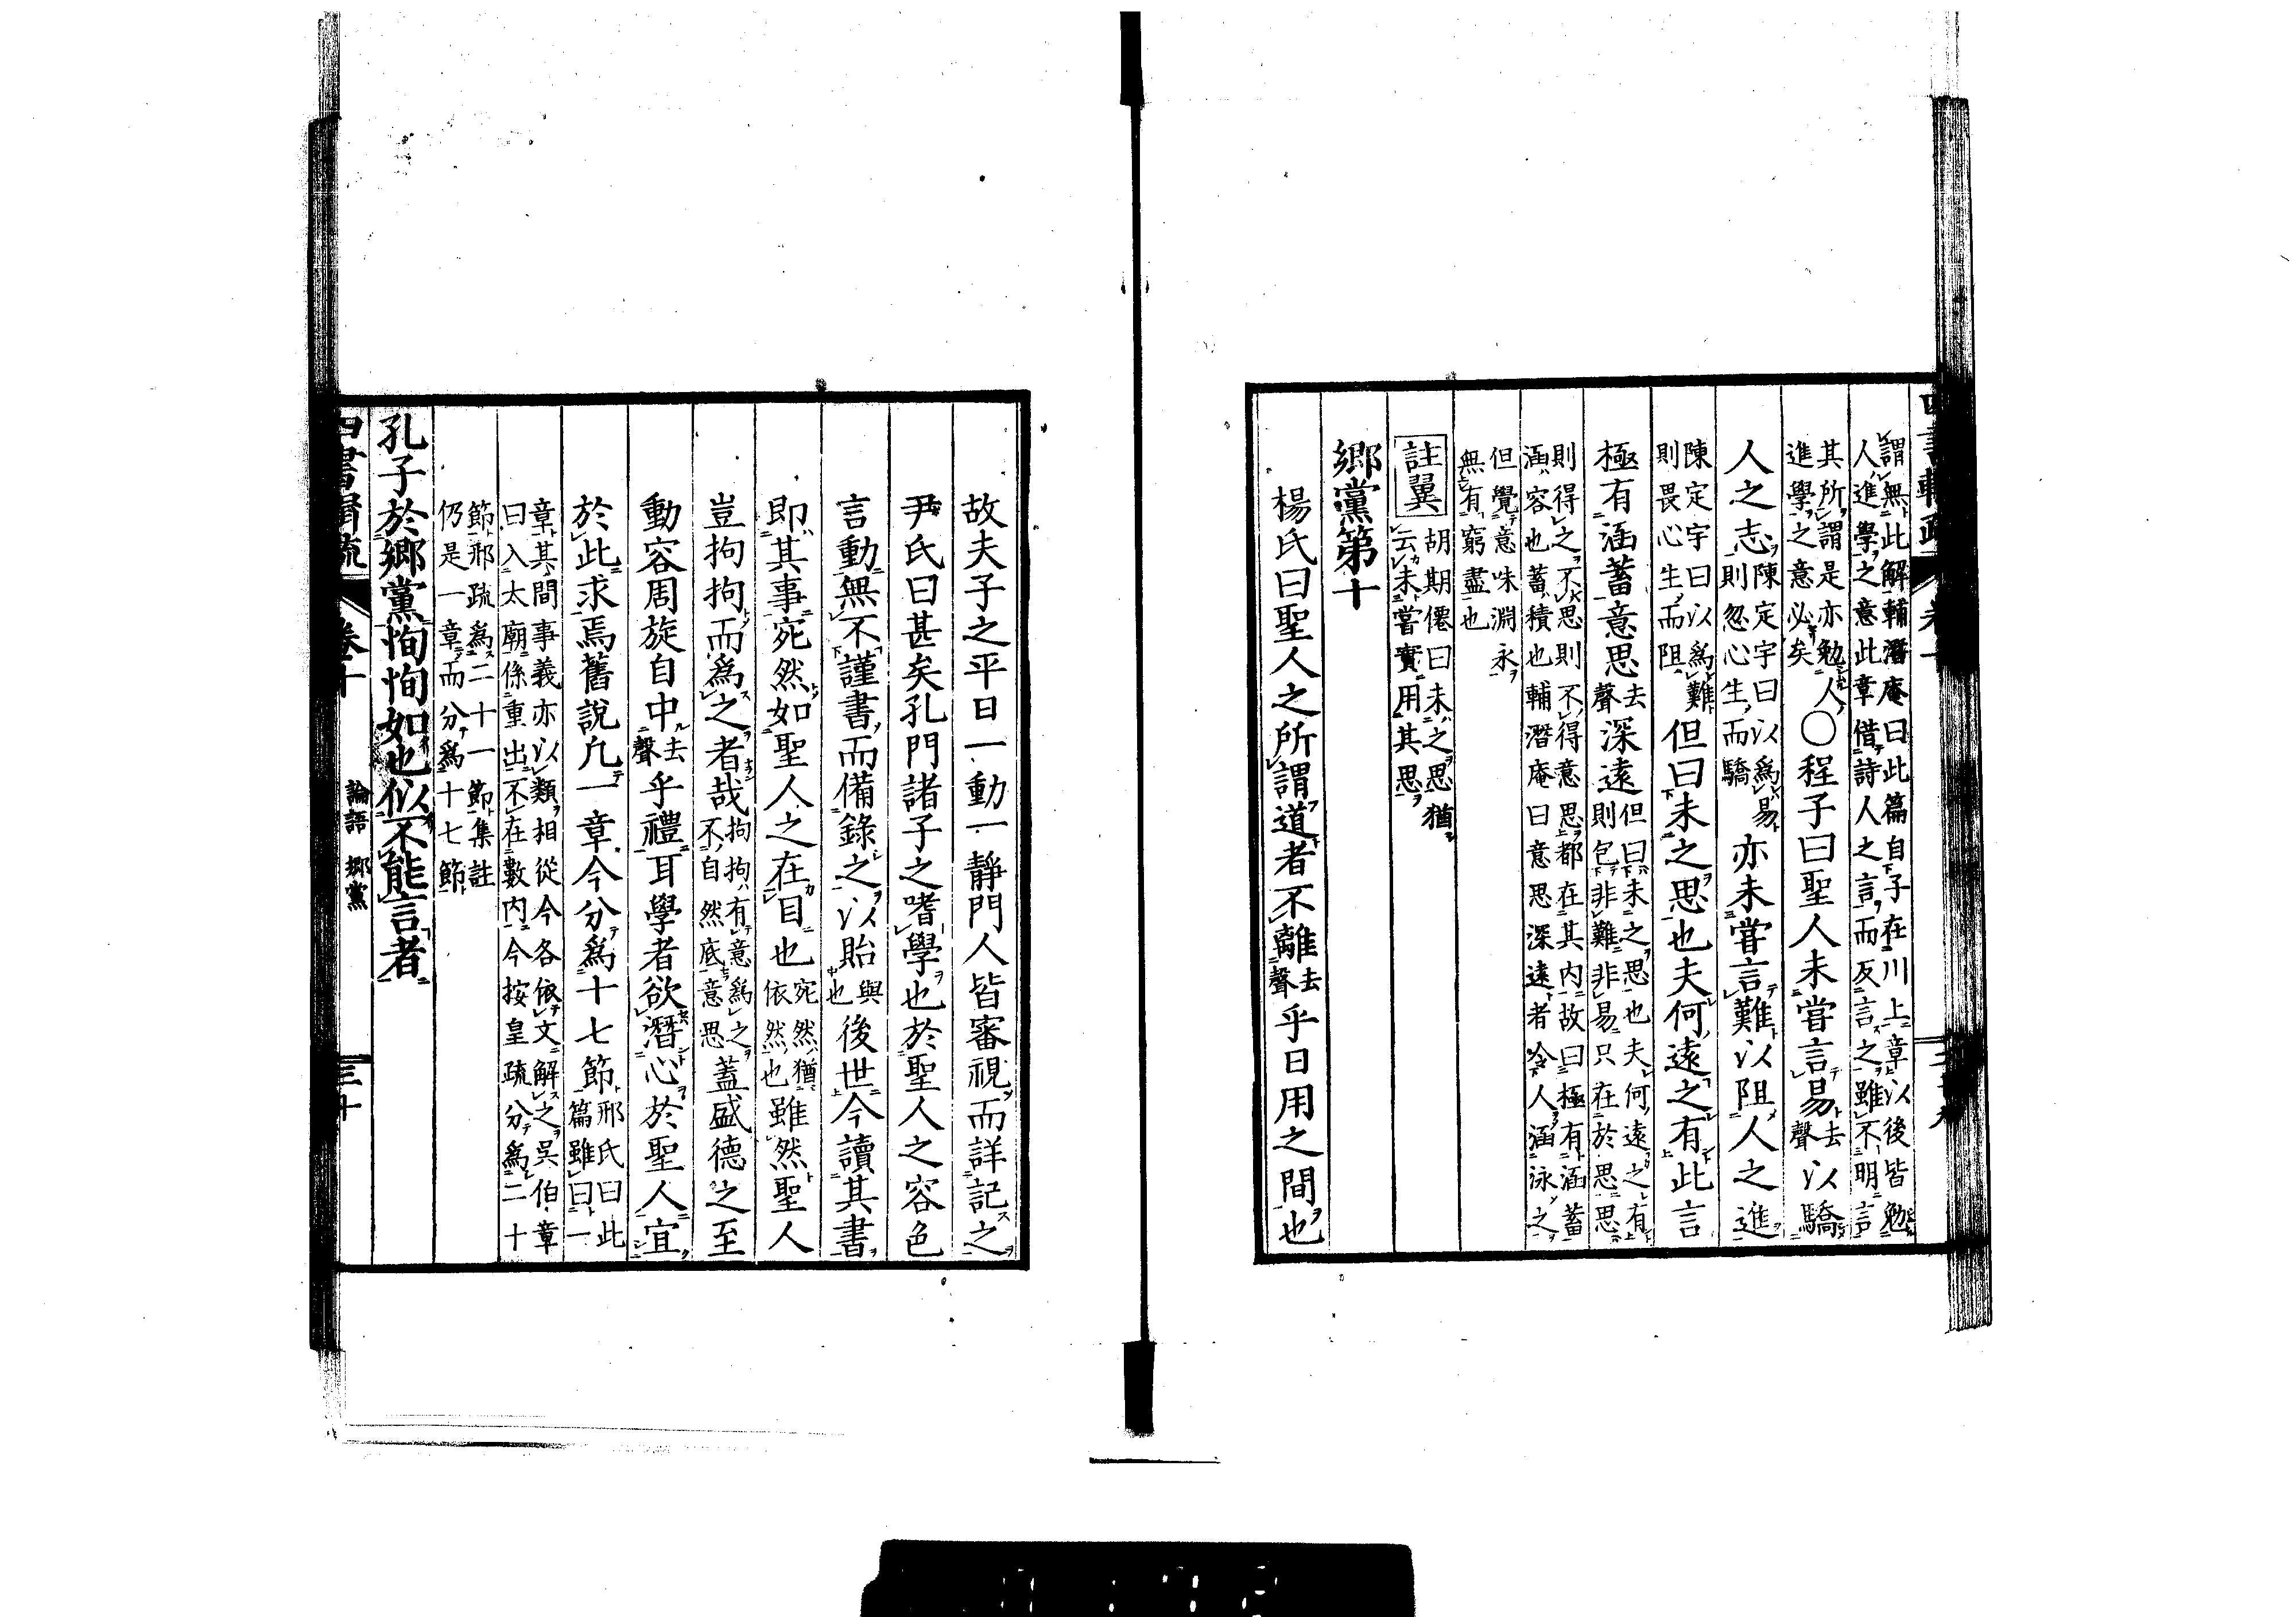 謂無此解輔潛庵曰此篇自子在川上章以後皆勉
人進學之意此章借詩人之言而反言之雖不明言
其所謂是亦勉人
進學之意必矣
○程子曰聖人未嘗言易去聲以驕
人之志陳定宇曰以爲易
則忽心生而驕亦未嘗言難以阻人之進
陳定宇曰以爲難
則畏心生而阻但曰未之思也夫何遠之有此言
極有涵蓄意思去聲深遠但曰未之思也夫何遠之有
則包非難非易只在於思思
則得之不思則不得意思都在其內故曰極有涵蓄
涵容也蓄積也輔潛庵曰意思深遠者令人涵泳之
但覺意味淵永
無有窮盡也
註翼 胡期僊曰未之思猶
云未嘗實用其思
鄉黨第十
楊氏曰聖人之所謂道者不離去聲乎日用之間也
故夫子之平日一動一靜門人皆審視而詳記之
尹氏曰甚矣孔門諸子之嗜學也於聖人之容色
言動無不謹書而備錄之以貽與也後世今讀其書
即其事宛然如聖人之在目也宛然猶
依然也雖然聖人
豈拘拘而爲之者哉拘拘有意爲之
不自然底意思蓋盛德之至
動容周旋自中去聲乎禮耳學者欲潛心於聖人宜
於此求焉舊說凡一章今分爲十七節邢氏曰此
篇雖曰一
章其間事義亦以類相從今各依文解之吳伯章
曰入太廟係重出不在數內今按皇疏分爲二十
節邢疏爲二十一節集註
仍是一章而分爲十七節
孔子於鄉黨恂恂如也似不能言者
卷十 論語 鄉黨 三十